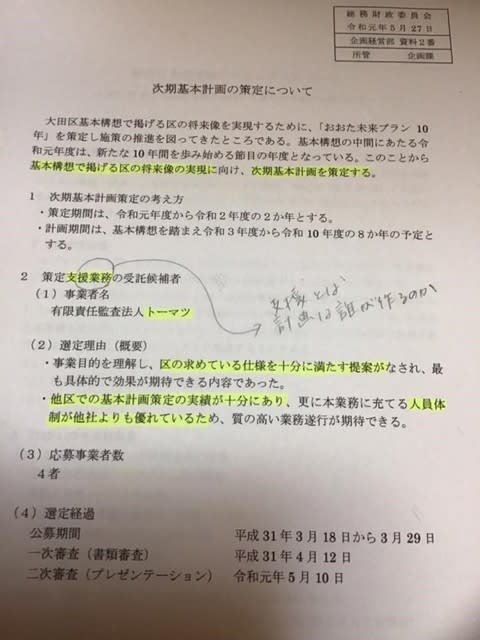 総務財政委員会
令和元年5月27日
企画経営部 資料2番
所管 企画課
次期基本計画の策定について
大田区基本構想で掲げる区の将来像を実現するために、「おおた未来プラン10
年」を策定し施策の推進を図ってきたところである。基本構想の中間にあたる令
和元年度は、新たな10年間を歩み始める節目の年度となっている。このことから
基本構想で掲げる区の将来像の実現に向け、次期基本計画を策定する。
1 次期基本計画策定の考え方
・策定期間は、令和元年度から令和2年度の2か年とする。
・計画期間は、基本構想を踏まえ令和3年度から令和10年度の8か年の予定と
する。
2 策定支援業務の受託候補者
(1)事業者名
有限責任監査法人トーマツ
支援とは
計画は誰が作るのか
(2)選定理由(概要)
・事業目的を理解し、区の求めている仕様を十分に満たす提案がなされ、最
も具体的で効果が期待できる内容であった。
・他区での基本計画策定の実績が十分にあり、更に本業務に充てる人員体
制が他社よりも優れているため、質の高い業務遂行が期待できる。
(3)応募事業者数
4者
(4)選定経過
公募期間 平成31年3月18日から3月29日
一次審査(書類審査) 平成31年4月12日
二次審査(プレゼンテーション) 令和元年5月10日